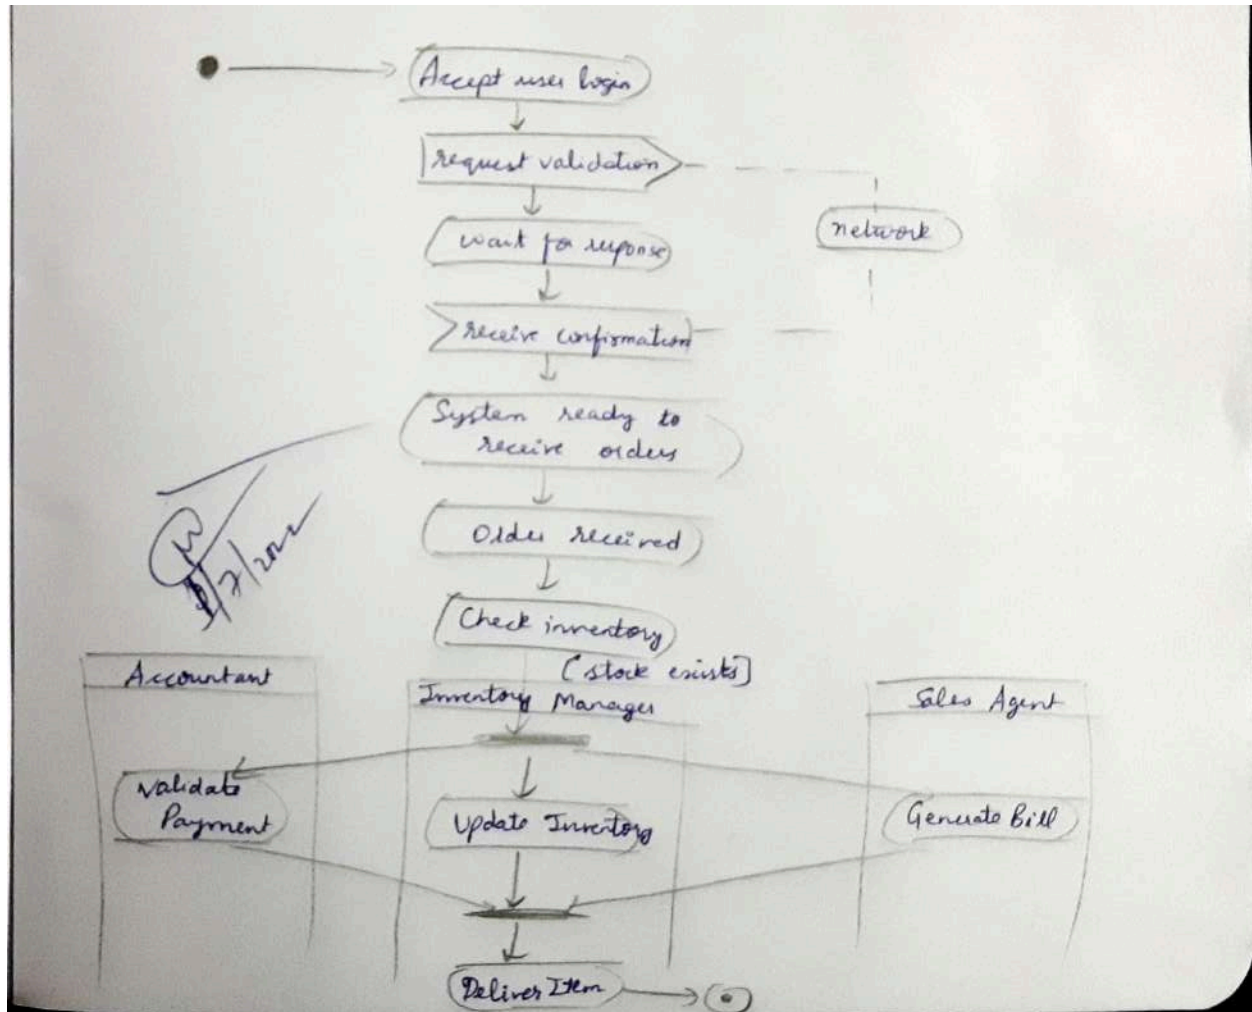 Accept user login
request validation
network
wait for reponse
receive confirmation
System ready to
receive orders
Order received
Check inventory
[stock exists]
Accountant
Inventory Manager
Sales Agent
Validate
Payment
Update Inventory
Generate Bill
Deliver Item